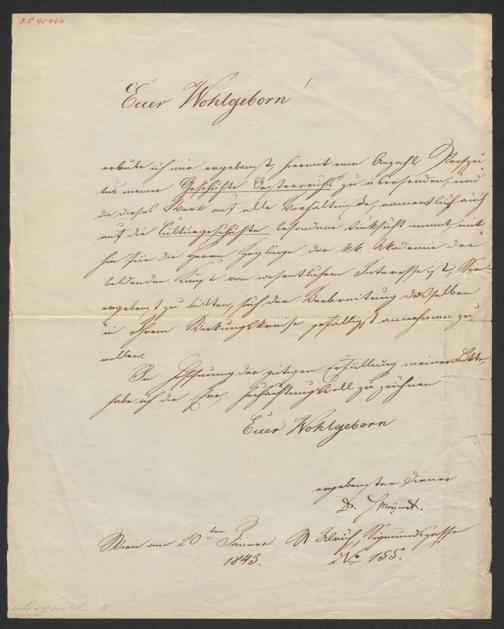 Euer Wohlgeborn!
erlaube ich mir ergebenst, hiermit eine Anzahl Prospec-
tus meiner Geschichte Oesterreichs zu übersenden, und
da dieses Werk auf alle Verhältnisse, namentlich auch
auf die Culturgeschichte besondere Rücksicht nimmt, mit-
hin für die Herren Zöglinge der kk. Akademie der
bildenden Kunst von wesentlichem Interesse ist, Sie
ergebenst zu bitten, sich der Verbreitung desselben
in Ihrem Wirkungskreise gefälligst annehmen zu
wollen.
In Hoffnung der gütigen Erfüllung meiner Bitte,
habe ich die Ehre, hochachtungsvoll zu zeichnen
Euer Wohlgeborn
ergebenster Diener
Dr. Meynert.
Wien am 20ten Jänner
1843.
St Ulrich, Sigmundsgasse
No 155.
Meynert H